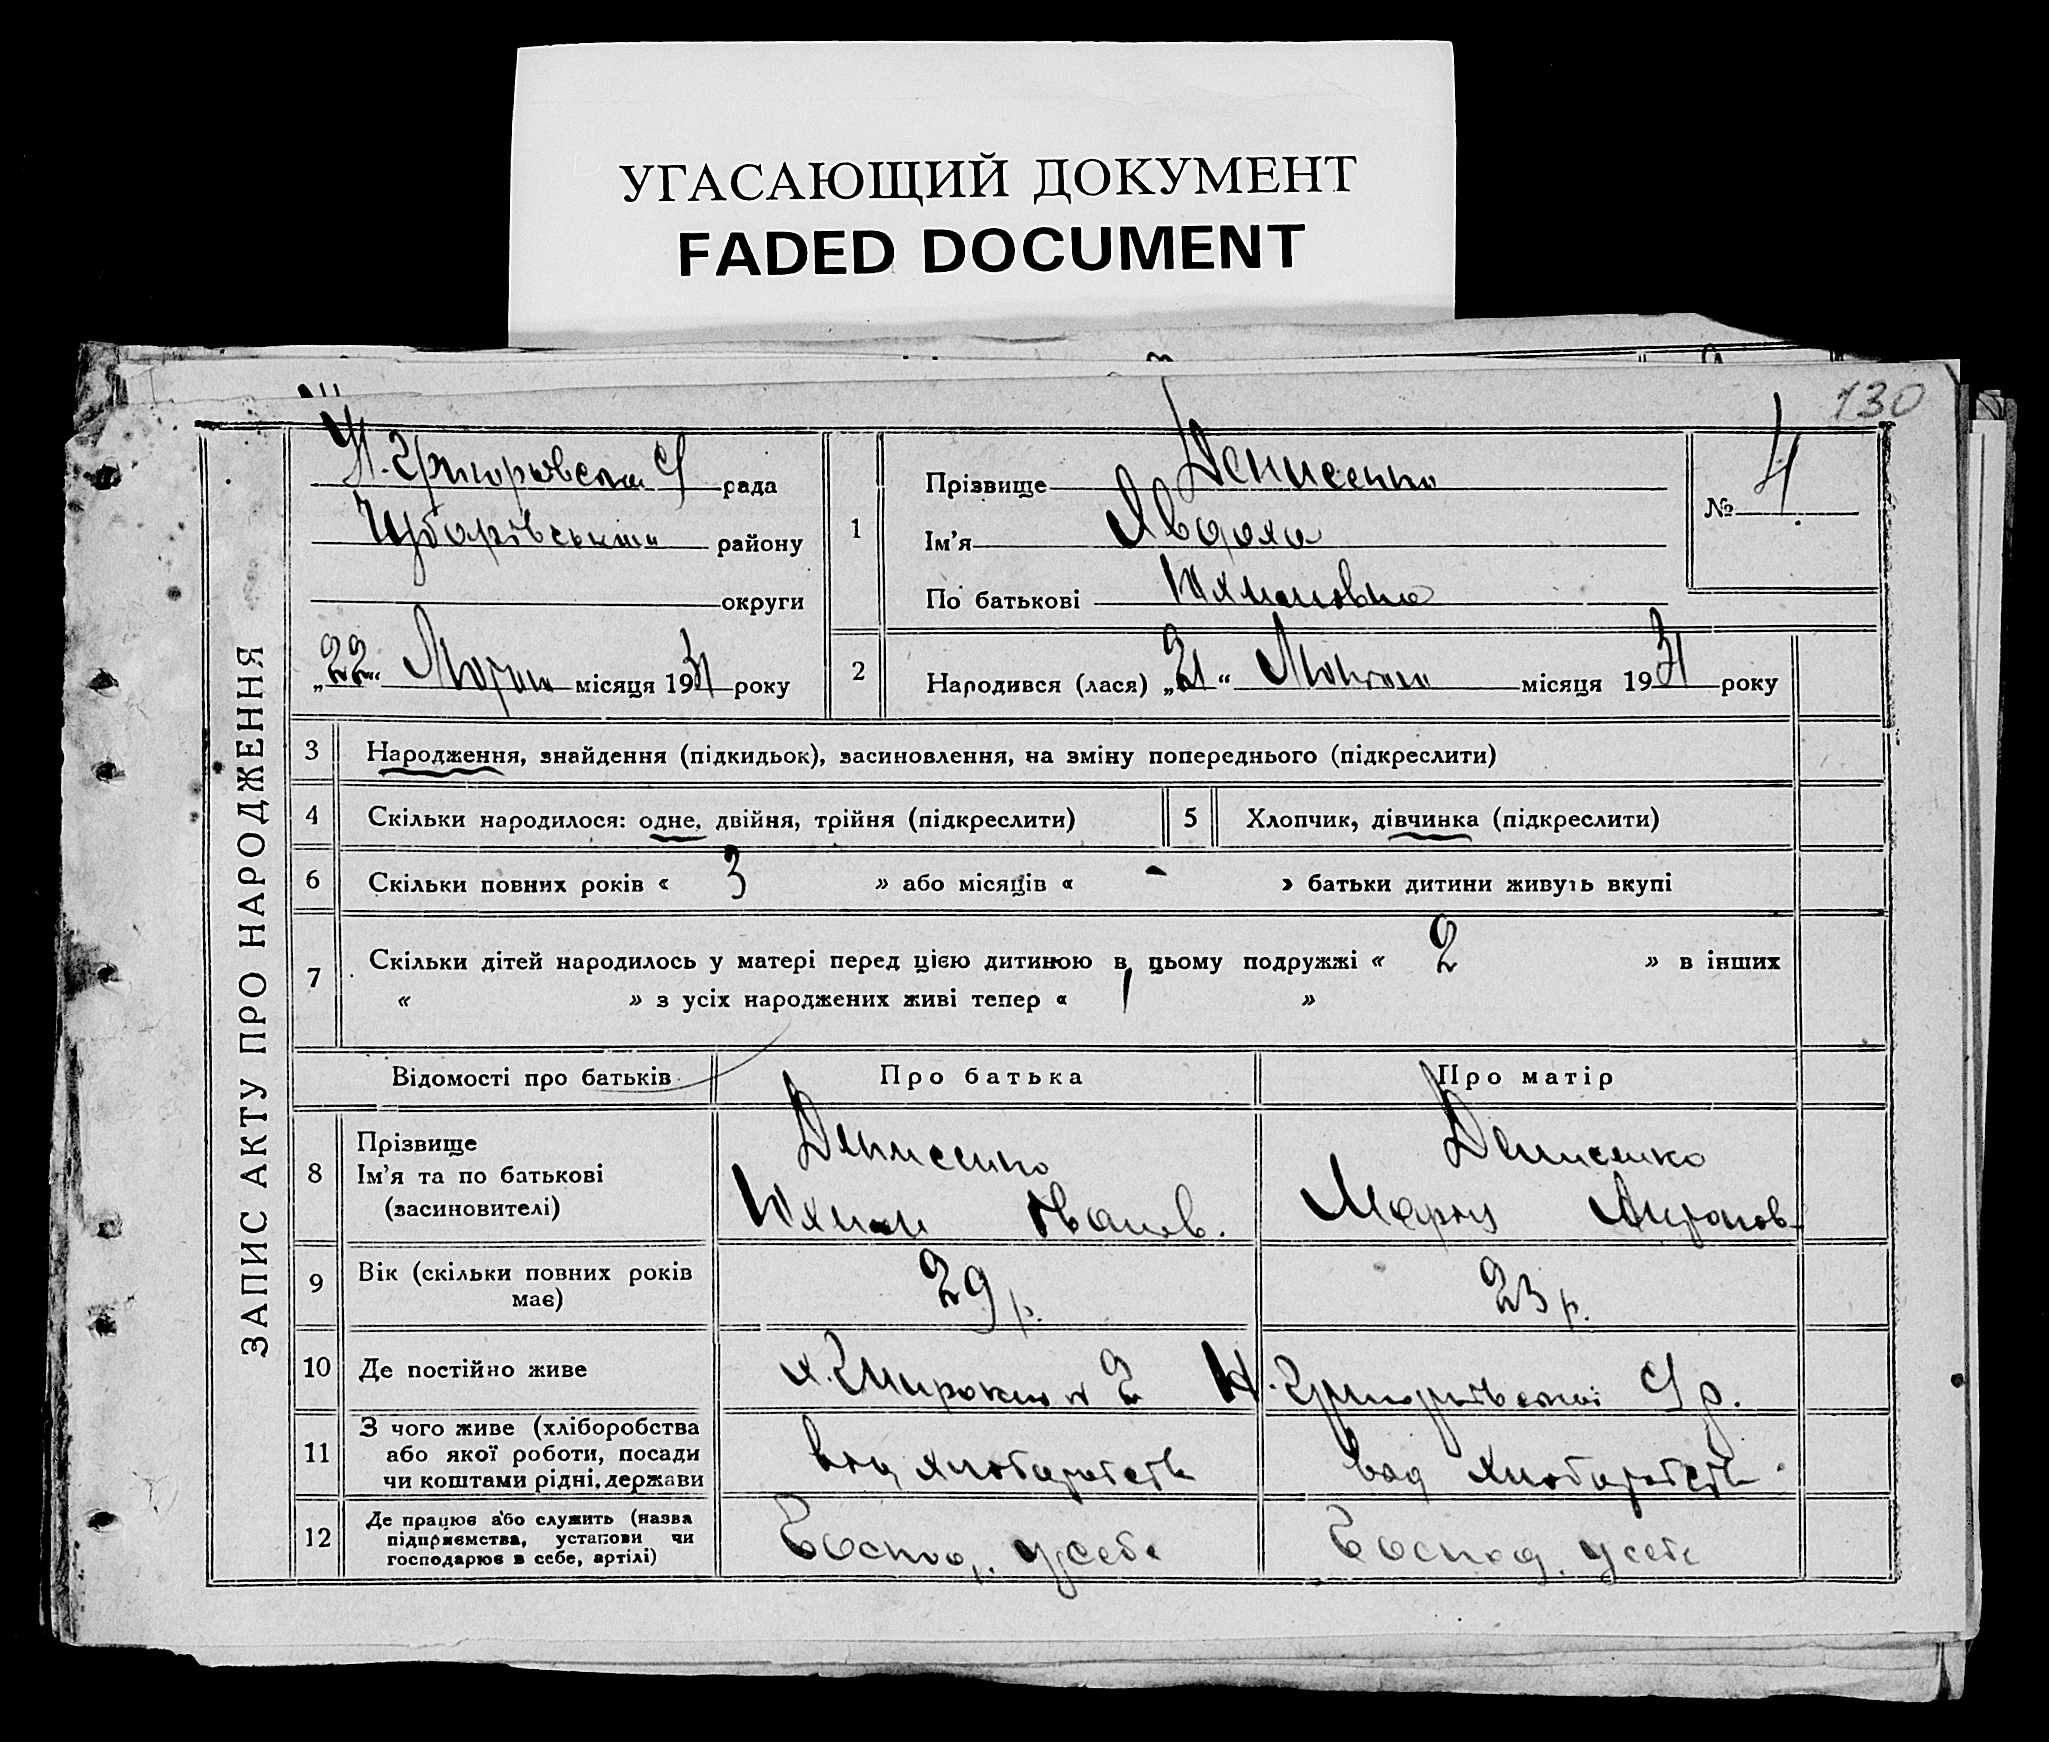 УГАСАЮЩИЙ ДОКУМЕНТ
FADED DOCUMENT
130
ЗАПИС АКТУ ПРО НАРОДЖЕННЯ
рада
району
округи
„22“ Марта місяця 1931 року
1
Прізвище Денисенко
Ім'я Явдоха
По батькові Юхимовна
№ 4
2
Народився (лася) „21“ місяця 1931 року
3 Народження, знайдення (підкидьок), засиновлення, на зміну попереднього (підкреслити)
4 Скільки народилося: одне, двійня, трійня (підкреслити)
5 Хлопчик, дівчинка (підкреслити)
6 Скільки повних років « 3 » або місяців « - » батьки дитини живуть вкупі
7 Скільки дітей народилось у матері перед цією дитиною в цьому подружжі « 2 » в інших
« » з усіх народжених живі тепер « 1 »
Відомості про батьків Про батька Про матір
8 Прізвище
Ім'я та по батькові
(засиновителі)
Денисенко
Юхим Іванов.
Денисенко
Мария
9 Вік (скільки повних років
має)
29 р.
23 р.
10 Де постійно живе
х. 2
11 З чого живе (хліборобства
або якої роботи, посади
чи коштами рідні, держави
12 Де працює або служить (назва
підприємства, установи чи
господарює в себе, артілі)
Господ. у себе
Господ. у себе